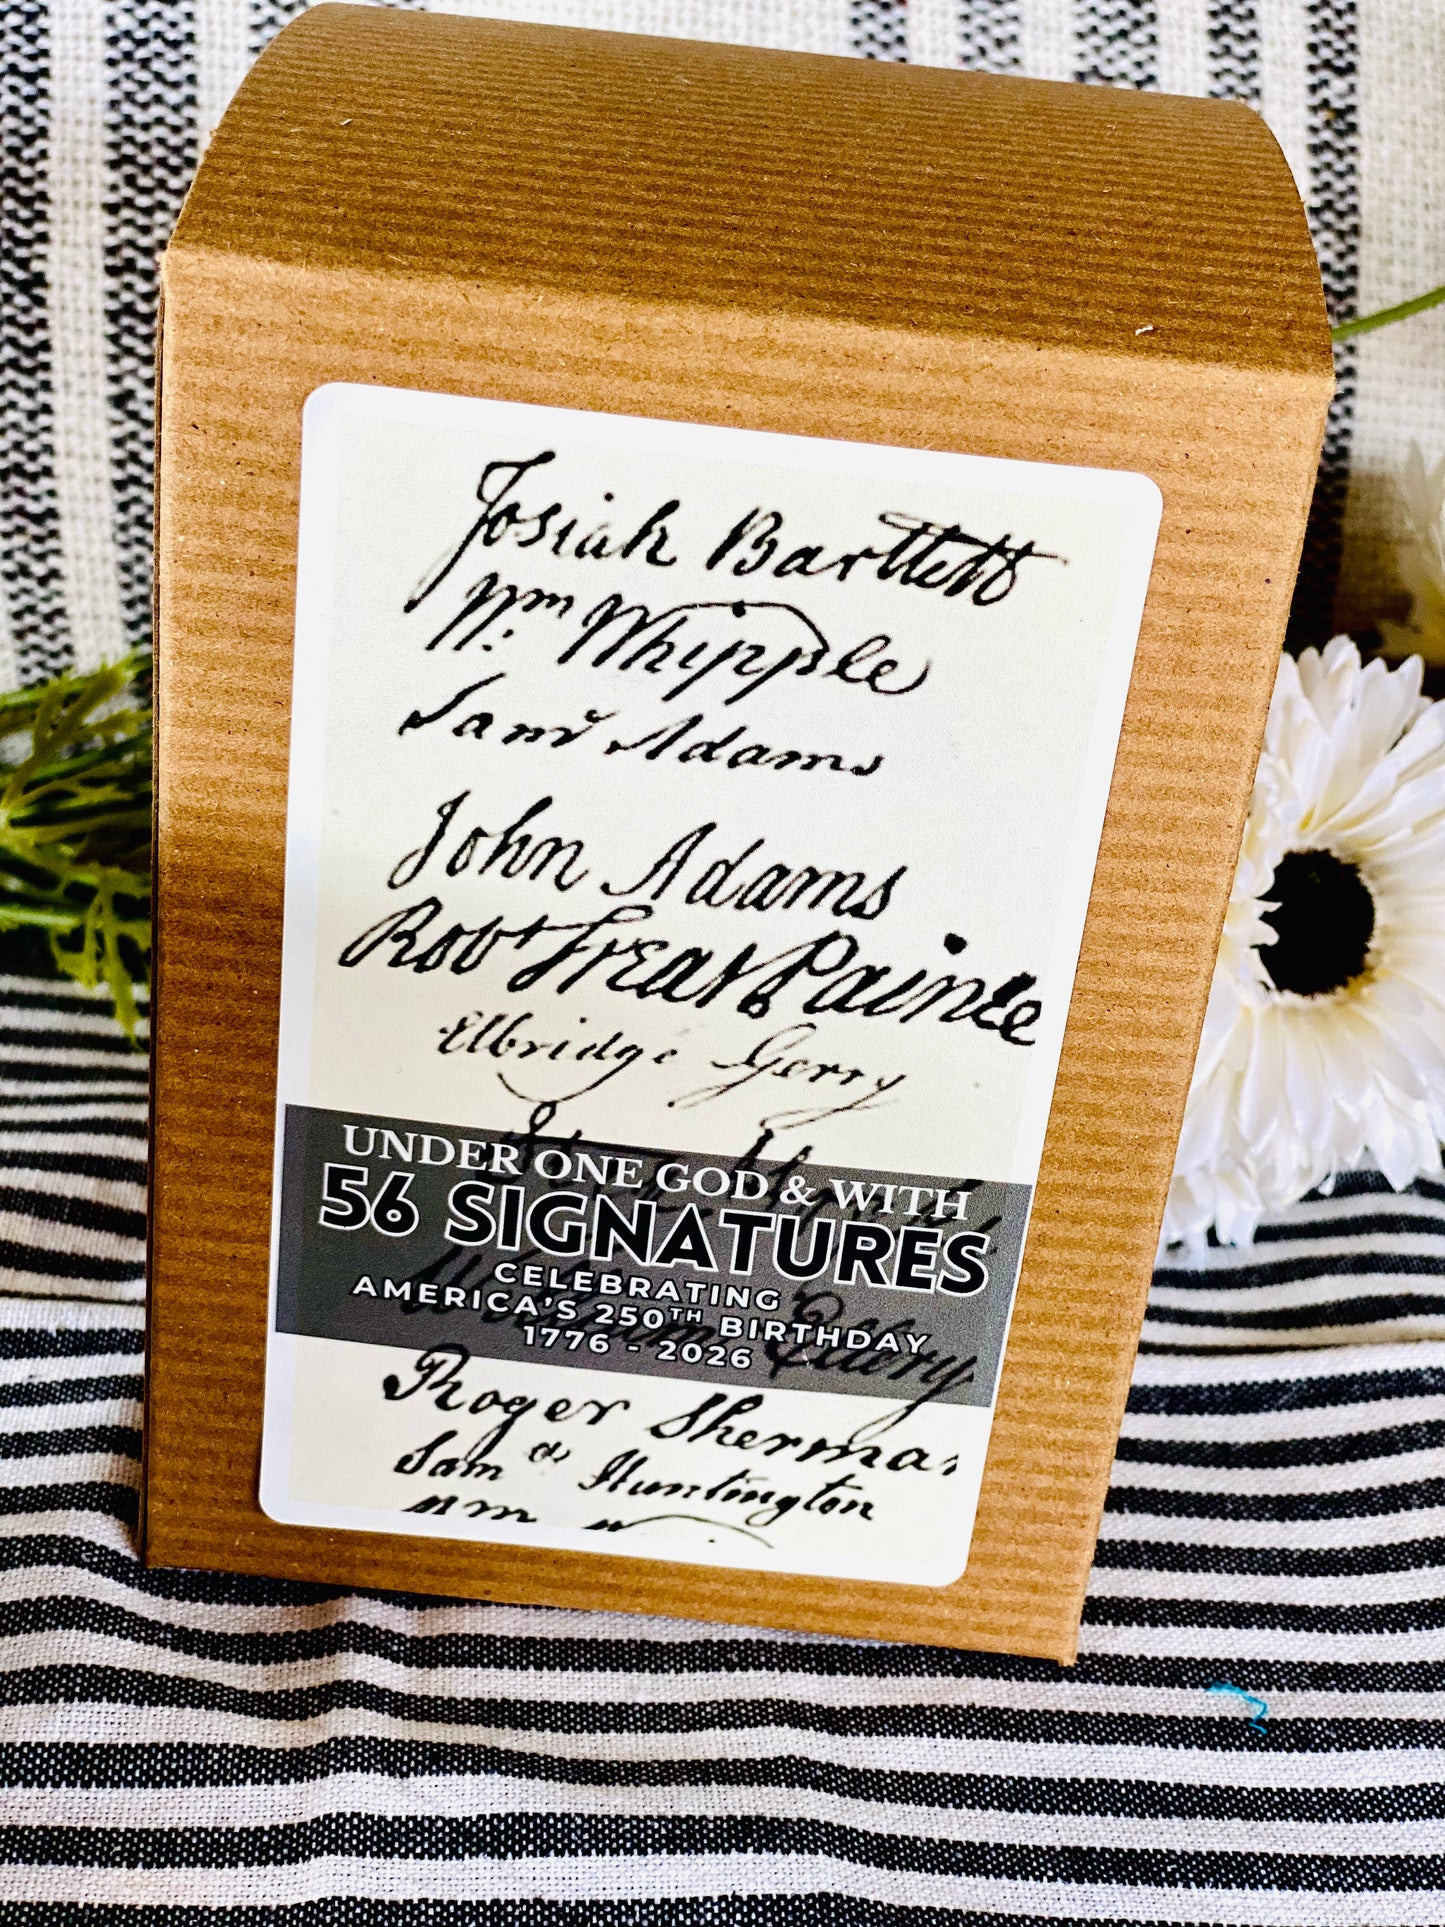 Josiah Bartlett
Wm: Whipple
Saml Adams
John Adams
Robt Treat Paine
Elbridge Gerry
UNDER ONE GOD & WITH
56 SIGNATURES
CELEBRATING
AMERICA'S 250TH BIRTHDAY
1776 - 2026
Ellery
Roger Sherman
Saml Huntington
Wm